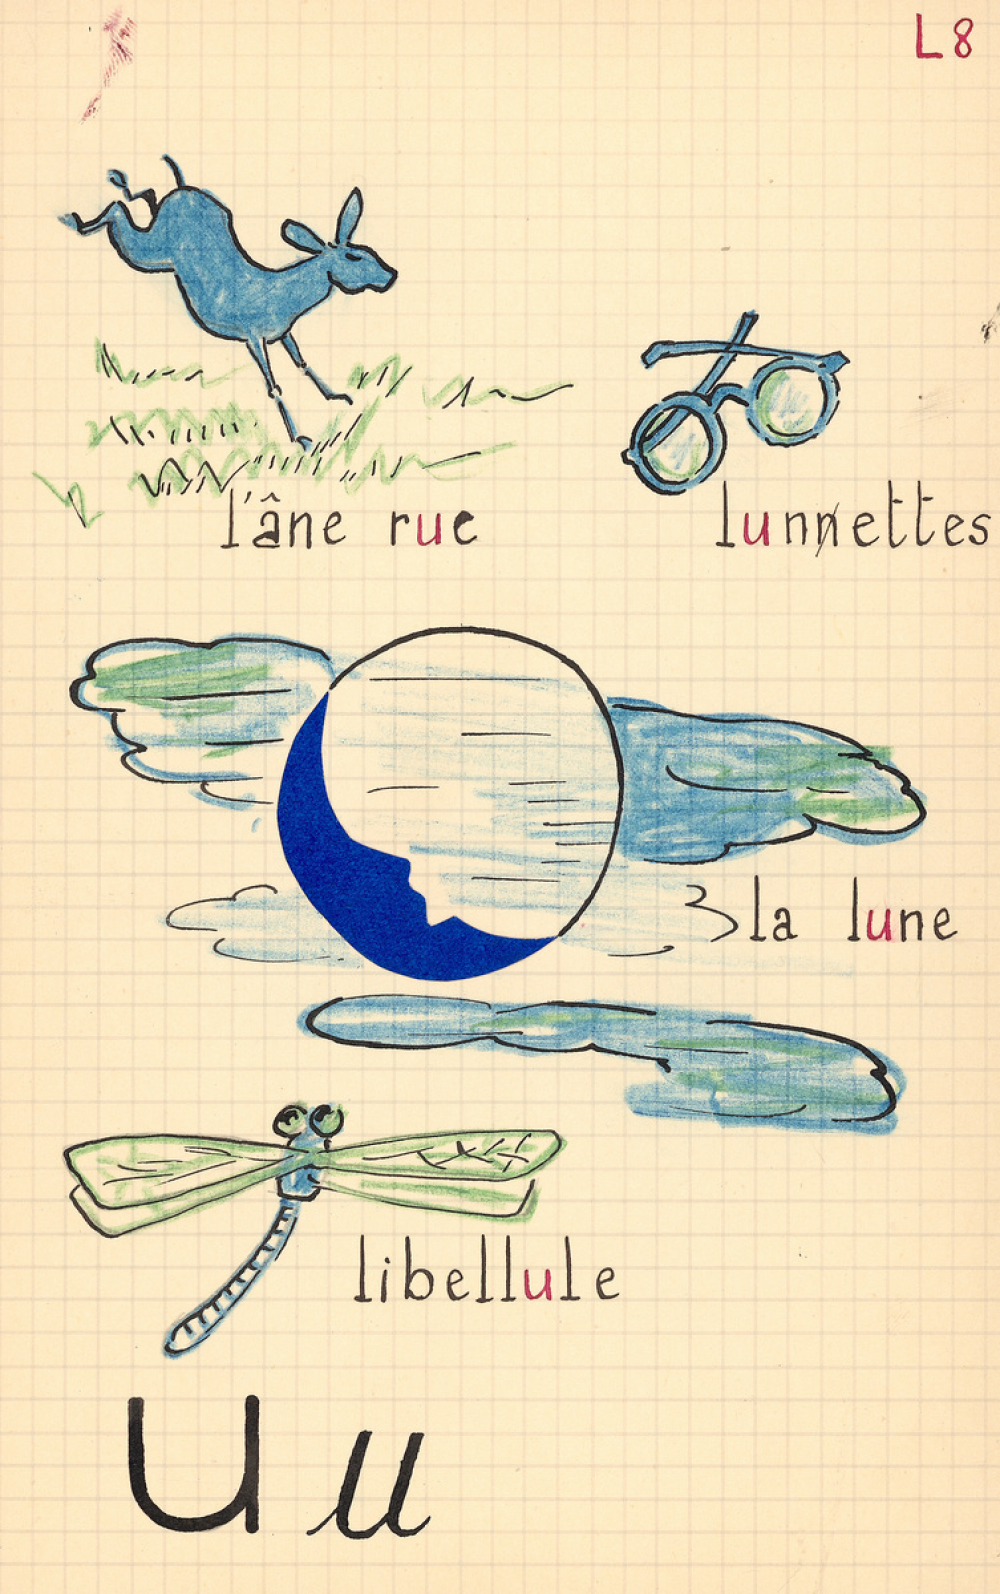 L8
l'âne rue
lunnettes
la lune
libellule
U u